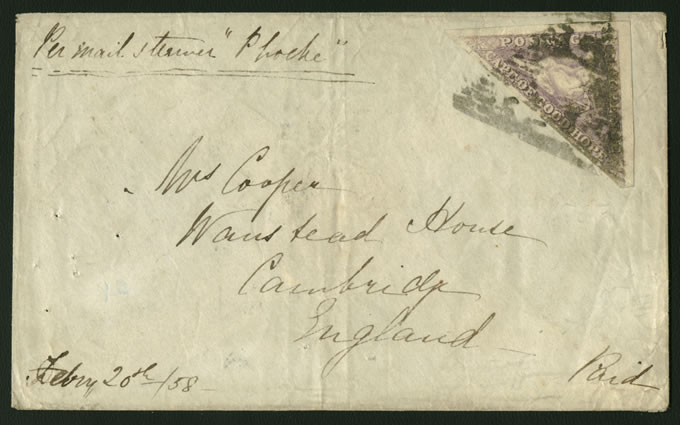 Per mail steamer "Phoebe"
POSTAGE
CAPE OF GOOD HOPE
Mrs Cooper
Wanstead House
Cambridge
England
Feby 20th /58
Paid